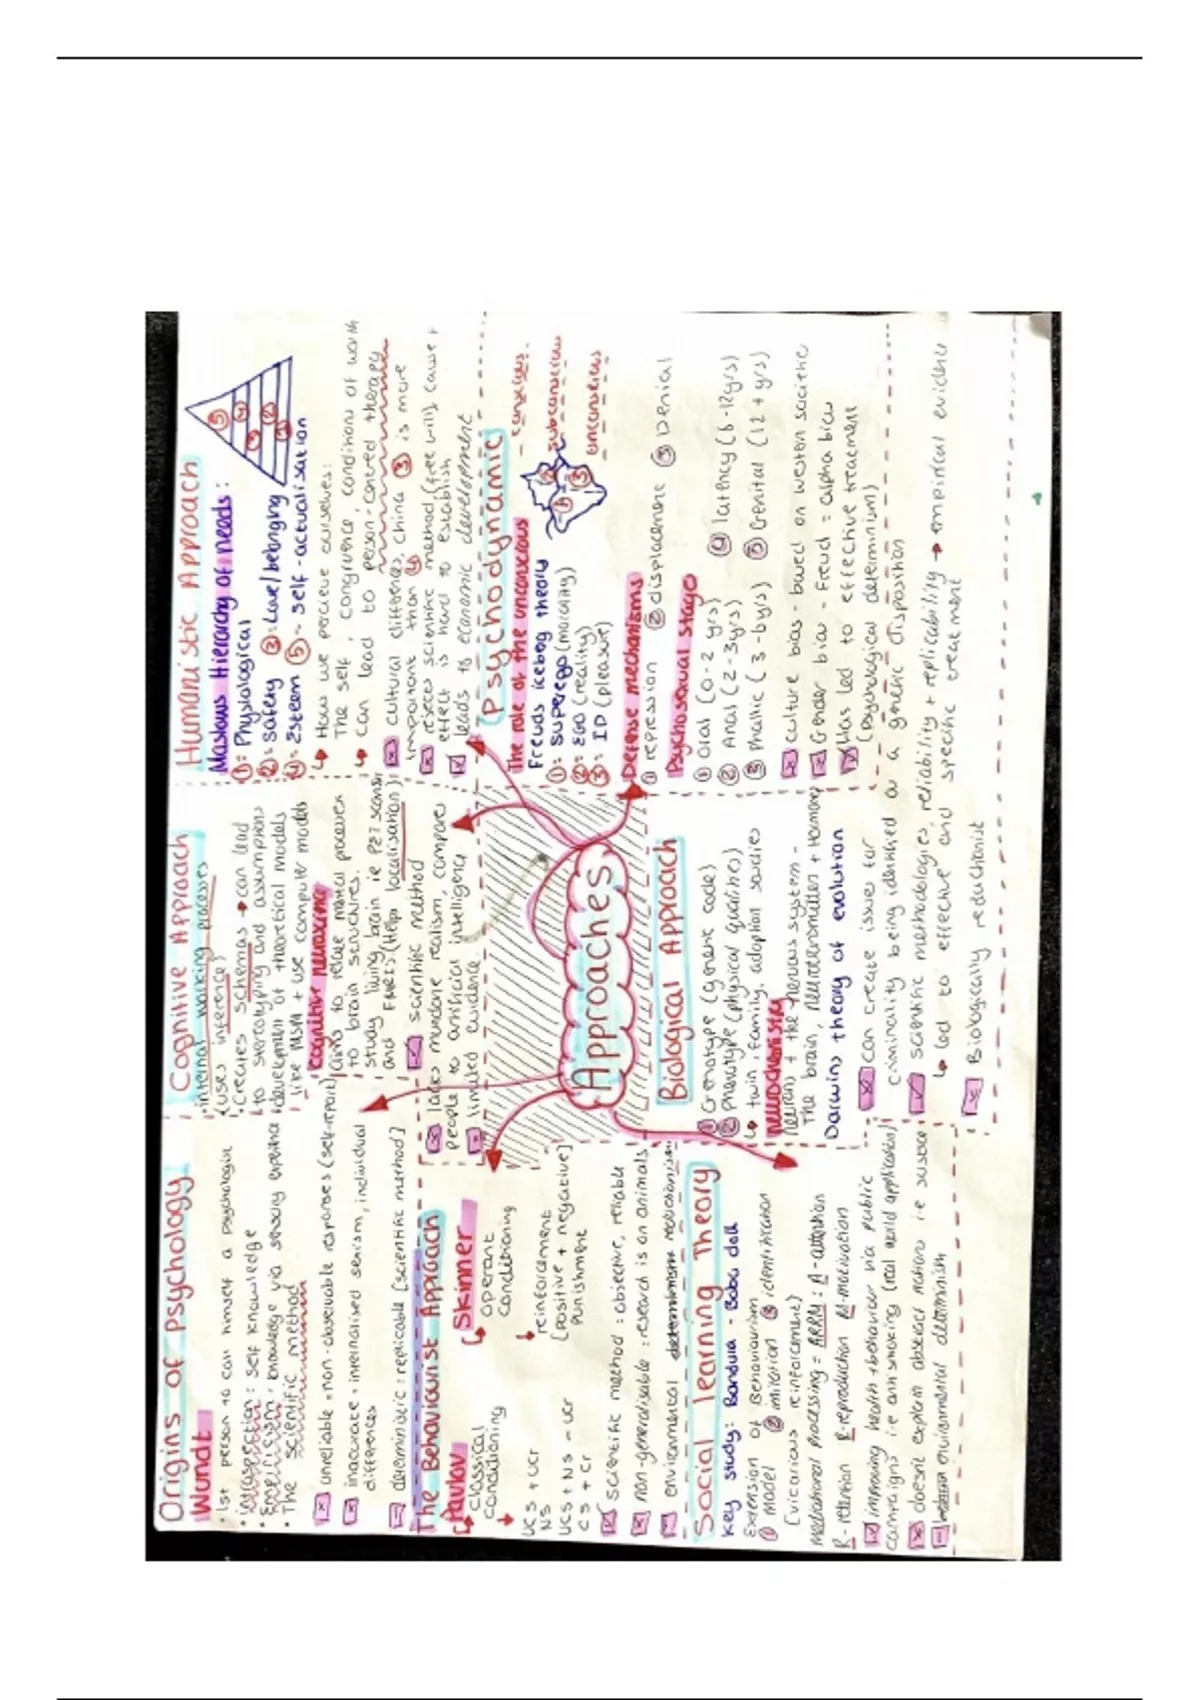 Origins of psychology
Wundt
• 1st person to call himself a psychologist
• introspection: self knowledge
• Empiricism: knowledge via sensory experience
• The scientific method
unreliable = non-observable responses (self-report)
inaccurate = internalised senism, individual
differences
deterministic: replicable [scientific method]
The Behaviourist Approach
Pavlov
classical
conditioning
UCS + UCR
NS
UCS + NS - UCR
CS + Cr
Skinner
operant
conditioning
reinforcement
[positive + negative]
punishment
scientific method: objective, reliable
non-generalisable: research is on animals
environmental determinism reductionism
Social learning Theory
Key study: Bandura - Bobo doll
Extension of Behaviourism
① model ② imitation ③ identification
(vicarious reinforcement)
mediational processing = ARRM: A-attention
R-retention R-reproduction M-motivation
improving health + behaviour via public
campaigns ie anti smoking (real world application)
doesnt explain abstract notions ie justice
environmental determinism
Cognitive Approach
• internal working processes
(uses inference)
• creates schemas → can lead
to stereotyping and assumptions
development of theoretical models
like MSM + use computer models
cognitive neuroscience
(aims to relate mental processes
to brain structures.
study living brain ie PET scans
and FMRIs (Help localisation)
scientific method
lacks mundane realism, compares
people to artificial intelligence
limited evidence
Approaches
Biological Approach
① Genotype (genetic code)
② Phenotype (physical qualities)
↳ twin, family, adoption studies
neurochemistry
neurons + the nervous system -
The brain, neurotransmitters + Hormones
Darwins theory of evolution
can create issues for
criminality being identified as a genetic disposition
scientific methodologies, reliability + replicability → empirical evidence
↳ led to effective and specific treatment
Biologically reductionist
Humanistic Approach
Maslows Hierarchy of needs:
①= Physiological
②= Safety ③= Love/belonging
④= Esteem ⑤ - self-actualisation
5
4
3
2
1
→ How we percieve ourselves:
The self, congruence, conditions of worth
→ can lead to person-centred therapy
cultural differences, china ③ is more
important than ④
rejects scientific method (free will), cause +
effect is hard to establish
leads to economic development
Psychodynamic
The role of the unconscious
Freuds iceberg theory
①= Superego (morality)
②= EGO (reality)
③= ID (pleasure)
1
2
3
conscious
subconscious
unconscious
Defense mechanisms
① repression ② displacement ③ Denial
Psychosexual stages
① Oral (0-2 yrs) ④ latency (6-12yrs)
② Anal (2-3yrs) ⑤ Genital (12+ yrs)
③ Phallic (3-6yrs)
culture bias - based on western societies
Gender bias - Freud = alpha bias
Has led to effective treatment
(psychological determinism)